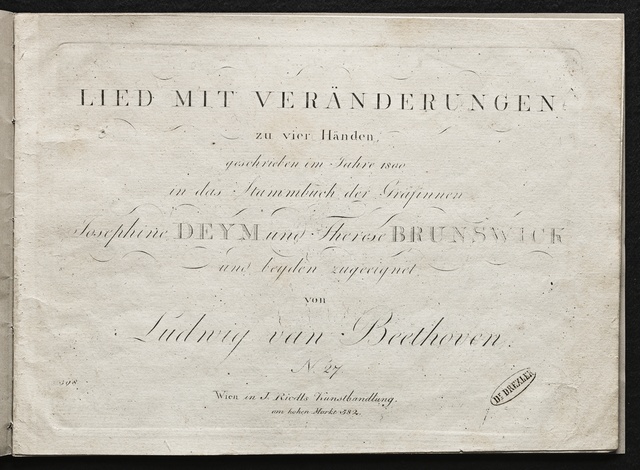 LIED MIT VERÄNDERUNGEN
zu vier Händen,
geschrieben im Jahre 1800
in das Stammbuch der Gräfinnen
Josephine DEYM und Therese BRUNSWICK
und beyden zugeeignet
von
Ludwig van Beethoven.
N. 27
398
Wien in J. Riedls Kunsthandlung.
am hohen Markt 582.
Dr DREZLER